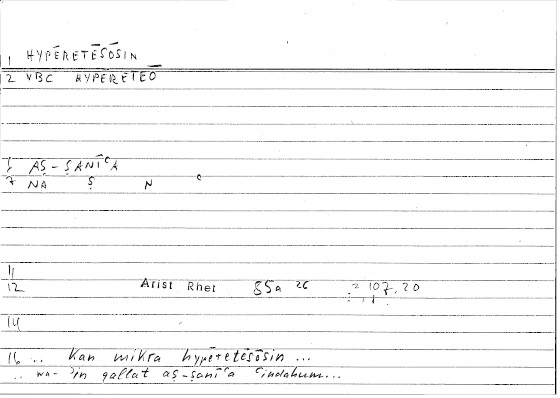 1 HYPĒRETĒSŌSIN
2 VBC HYPERETEŌ
6 AṢ-ṢANĪʿA
7 NA Ṣ N ʿ
11
12 Arist Rhet 85a 26 107,20
14
16 .. Kan mikra hypēretēsōsin ...
.. wa-ʾin qallat aṣ-ṣanīʿa ʿindahum...